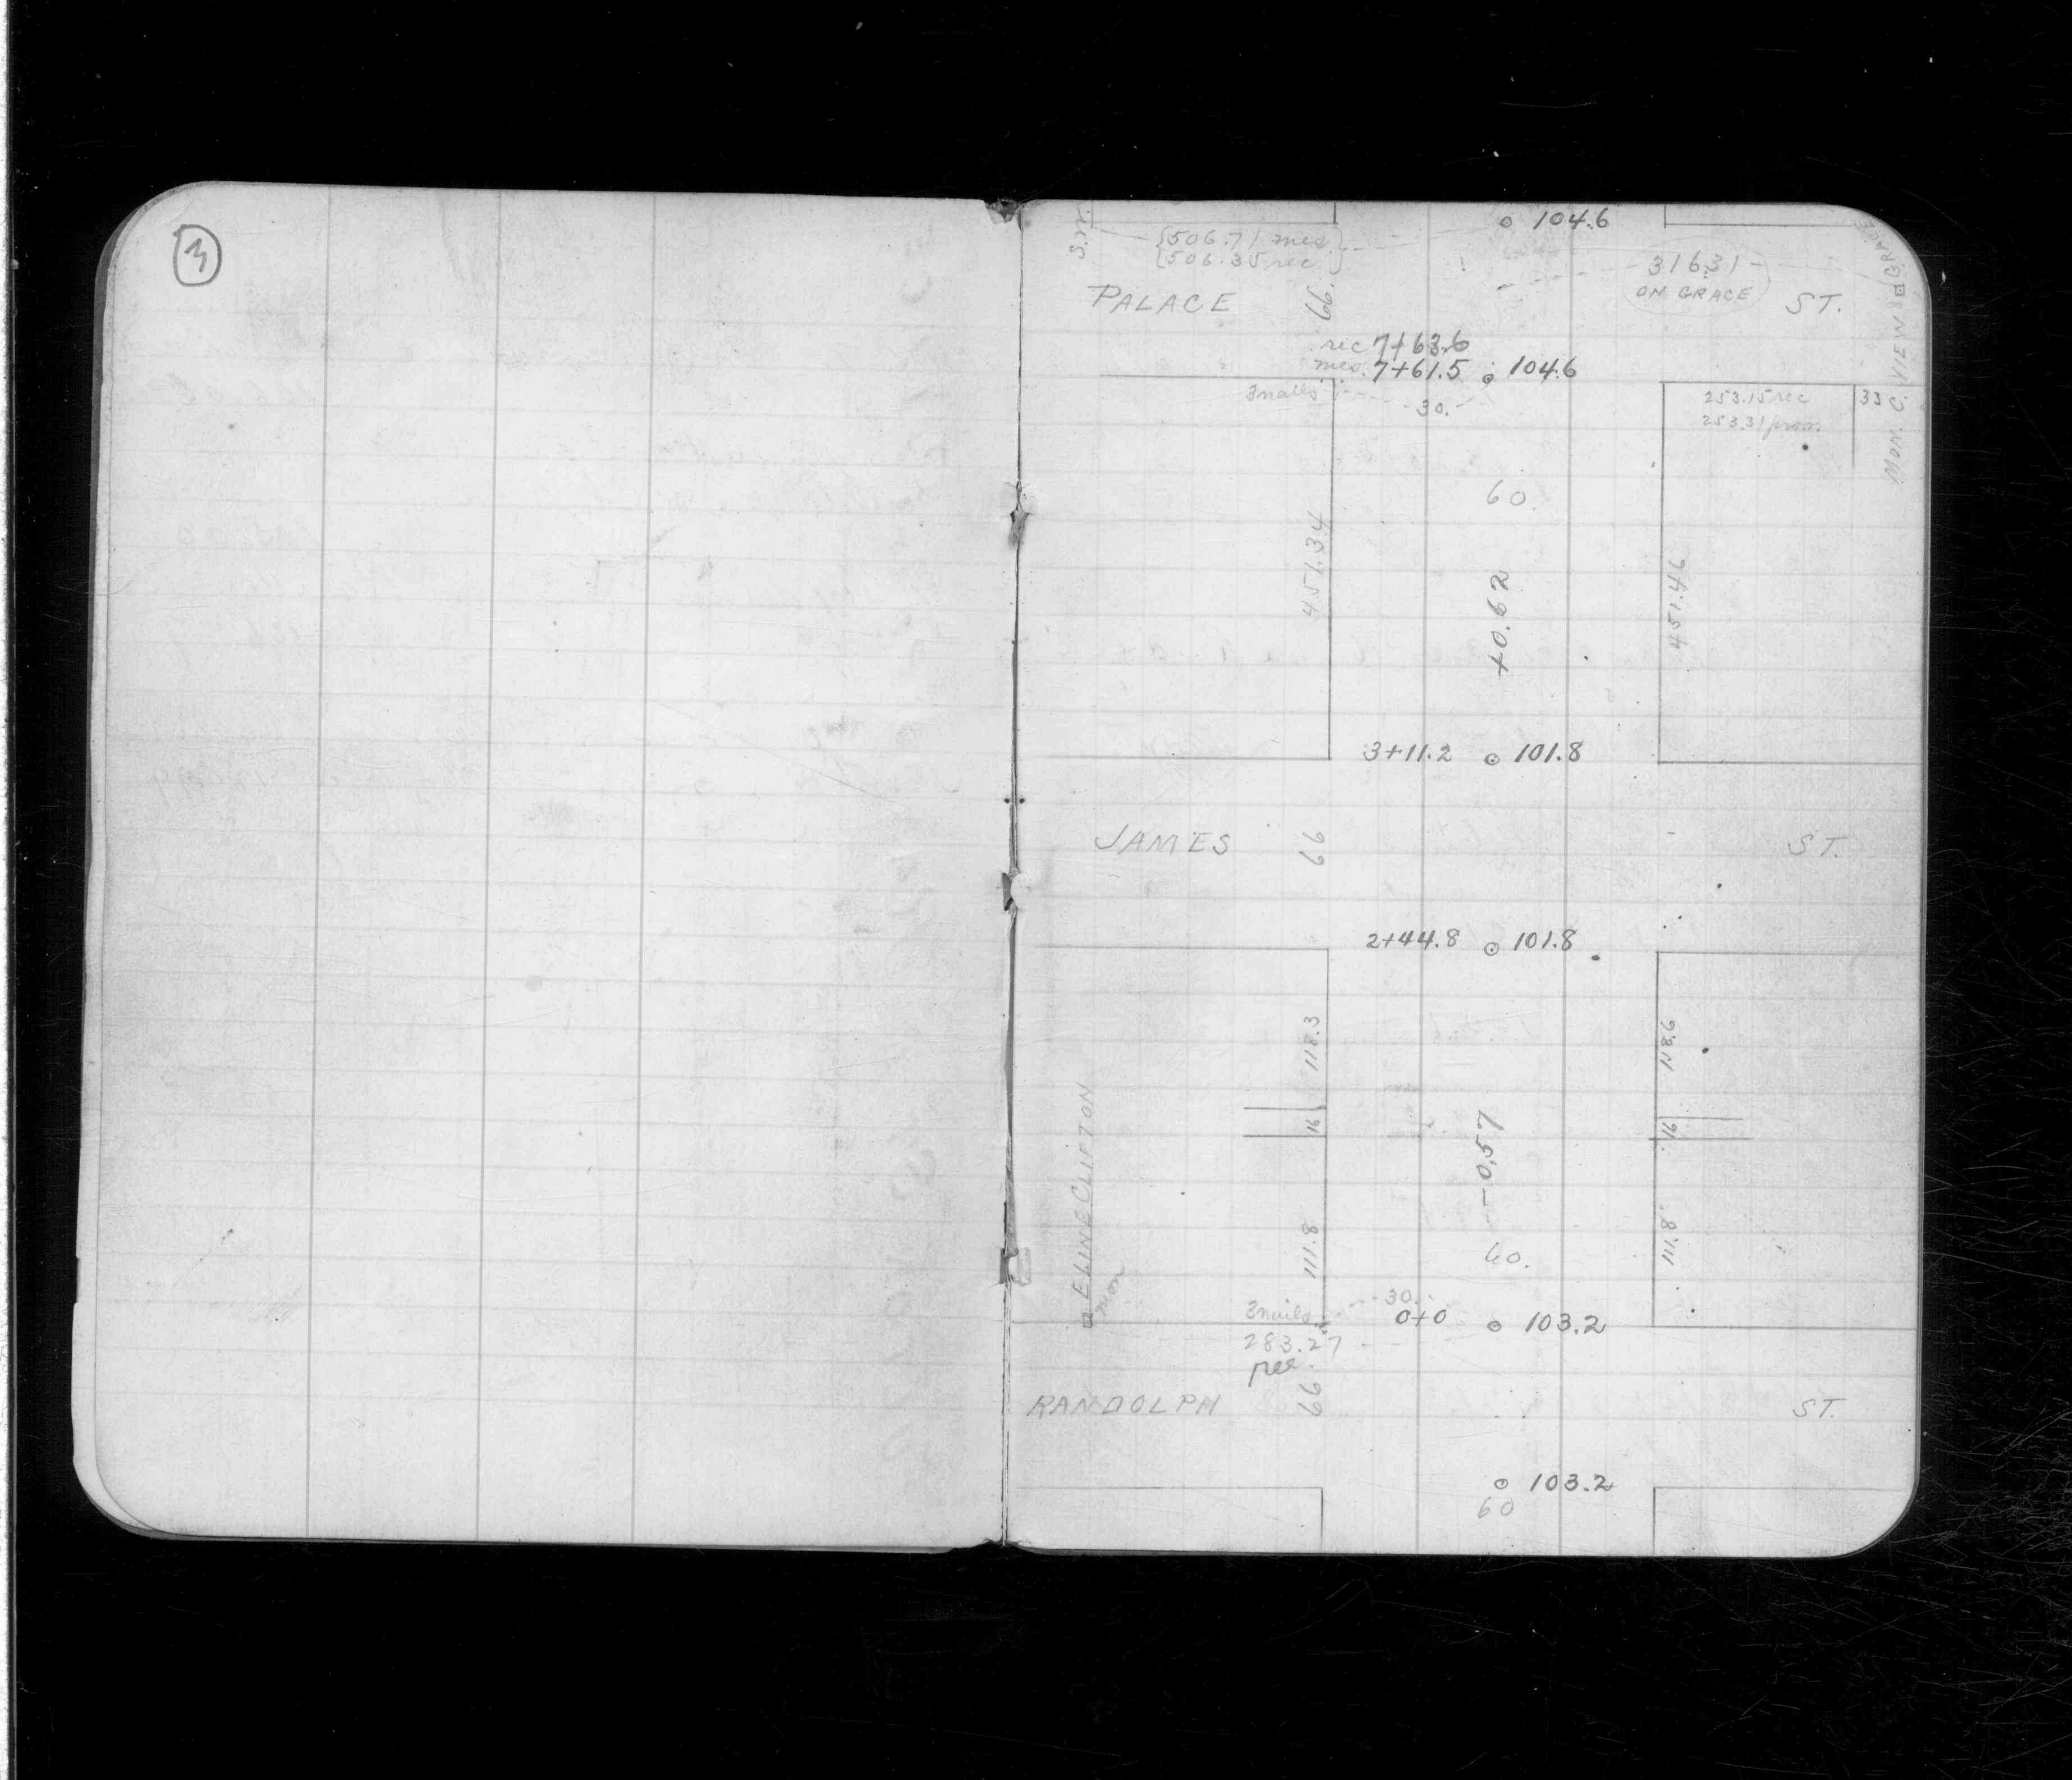 3
104.6
S.W.
{506.71 mes}
{506.35 rec}
316.31
ON GRACE
PALACE 66. ST.
MON. C. VIEW & GRACE
rec 7+63.6
mes. 7+61.5 104.6
3 nails 30.
253.15 rec 33
253.31 prov.
60
451.34 +0.62 451.46
3+11.2 101.8
JAMES 66 ST.
2+44.8 101.8
118.3 118.6
16 16
-0.57
E LINE CLIFTON
mon
111.8 111.8
60.
3 nails 30.
0+0 103.2
283.27
rec.
RANDOLPH 66 ST.
103.2
60